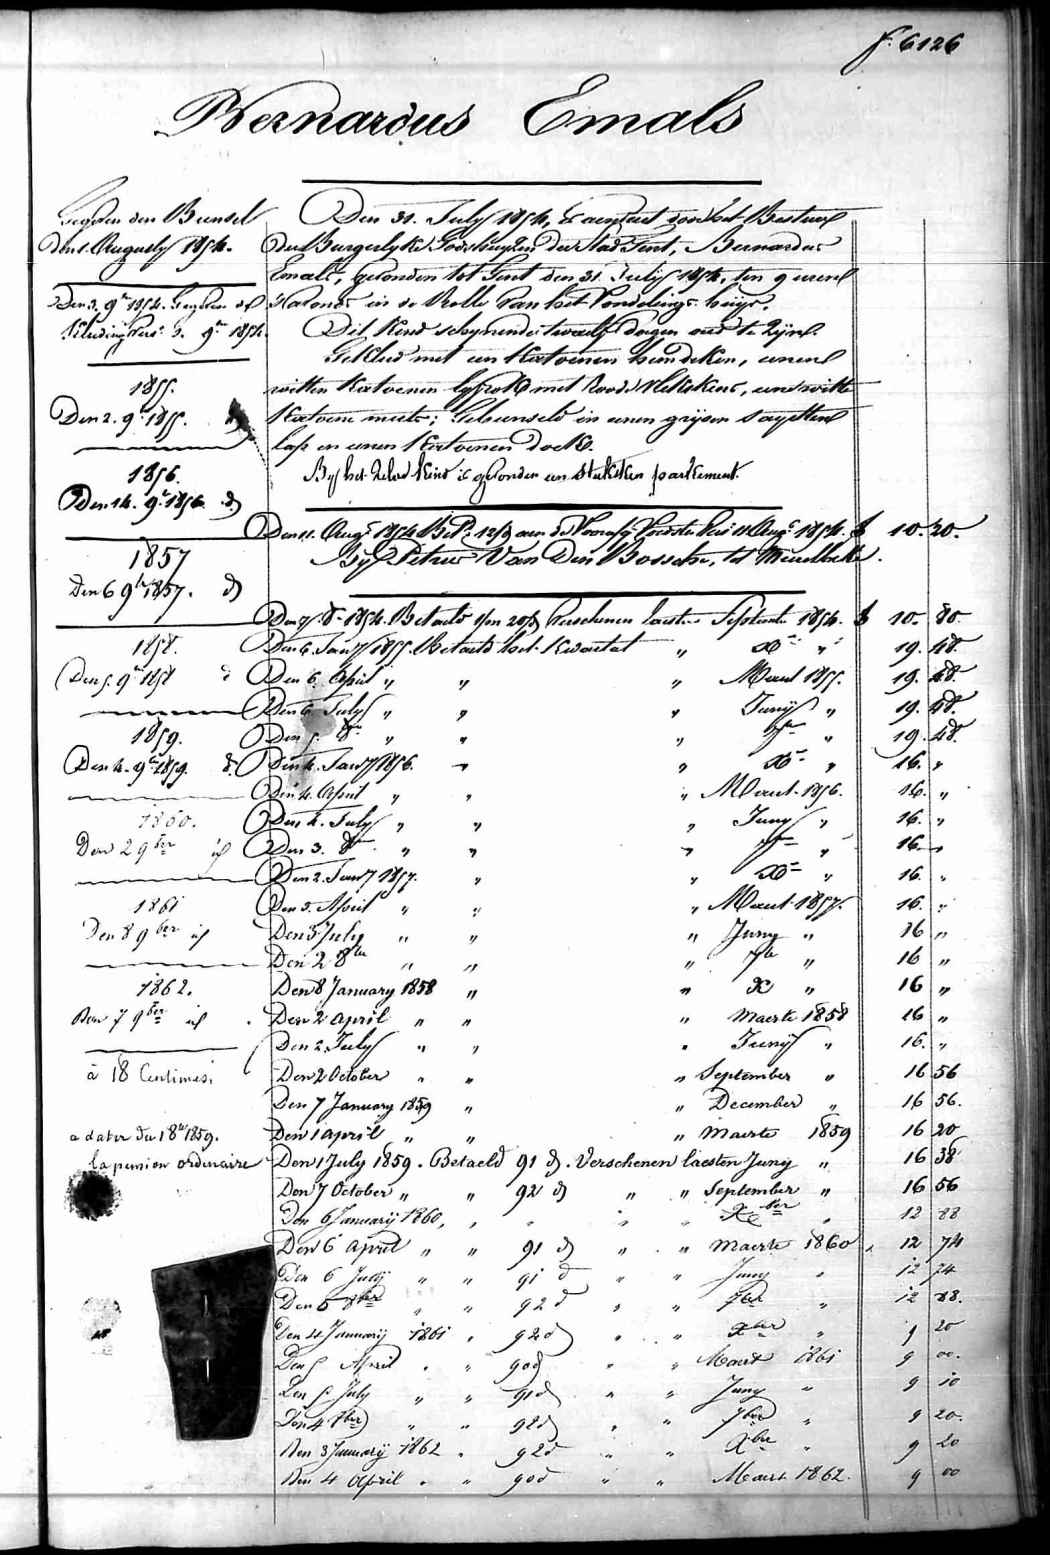 f. 6126
Bernardus Emals
Gegeven den Bunsel
den 1 Augusty 1854.
Den 3. 9.r 1854. Gegeven de
kleeding 9.r 1854.
1855.
Den 2. 9.r 1855. d
1856.
Den 14. 9.r 1856. d
1857
Den 6 9br 1857. d
1858.
Den 5. 9.r 1858 d
1859.
Den 4. 9.r 1859. d.
1860.
Den 2 9ber id
1861
Den 8 9ber id
1862.
Den 7 9ber id
à 18 Centimes.
a dater du 1 8bre 1859.
la pension ordinaire
Den 31. July 1854, is aenveerd door het Bestuer
der Burgerlyke Godshuyzen der Stad Gent, Bernardus
Emals, gevonden tot Gent den 31. July 1854, ten 9 uren
s'Avonds in de Rolle van het Vondelings-huys.
Dit Kind schynende twaelf dagen oud te zyn.
Gekleed met een Kattoenen hemdeken, eenen
witten Kattoenen met roode Vlekskens, eene witte
Kattoene muts; Gebunseld in eenen gryzen sayetten
lap en eenen Kattoenen doek.
By het zelve kind is gevonden een stuksken parkement.
Den 11. Aug. 1854 1854. f 10. 20.
By Petrus Van Den Bossche, tot Meirelbeke.
Den 7. 8.r 1854. Betaeld Verschenen laesten September 1854. f 10. 80.
Den 6. Jan.y 1855. Betaeld het Kwartal " Xr " 19. 48.
Den 6. April " " " Maert 1855. 19. 48.
Den 6. July " " " Juny " 19. 48.
Den 5. 8.r " " " 7br " 19. 48.
Den 4. Jan.y 1856. " " Xr " 16. "
Den 4. April " " " Maert 1856. 16. "
Den 4. July " " " Juny " 16. "
Den 3. 8r " " " 7br " 16. "
Den 2. Jan.y 1857. " " Xr " 16. "
Den 3. April " " " Maert 1857. 16. "
Den 3 July " " " Juny " 16 "
Den 2 8bre " " " 7br " 16 "
Den 8 January 1858 " " X " 16 "
Den 2 april " " " Maerte 1858 16 "
Den 2 July " " " Juny " 16. "
Den 2 October " " " September " 16 56
Den 7 January 1859 " " December " 16 56.
Den 1 april " " " Maerte 1859 16 20
Den 1 July 1859. Betaeld 91 d. Verschenen laesten Juny " 16 38
Den 7 October " " 92 d " " September " 16 56
Den 6 Januarij 1860, " " " " Xber " 12 88
Den 6 April " " 91 d " " Maerte 1860 12 74
Den 6 July " " 91 d " " Juny " 12 74
Den 5 8ber " " 92 d " " 7ber " 12 88.
Den 4 Januarij 1861 " 92 d " " Xber " 9 20
Den 5 April " " 90 d " " Maert 1861 9 00.
Den 5 July " " 91 d " " Juny " 9 10
Den 4 8ber " " 92 d " " 7ber " 9 20.
Den 3 Januarij 1862 " 92 d " " Xbre " 9 20
Den 4 April " " 90 d " " Maert 1862. 9 00